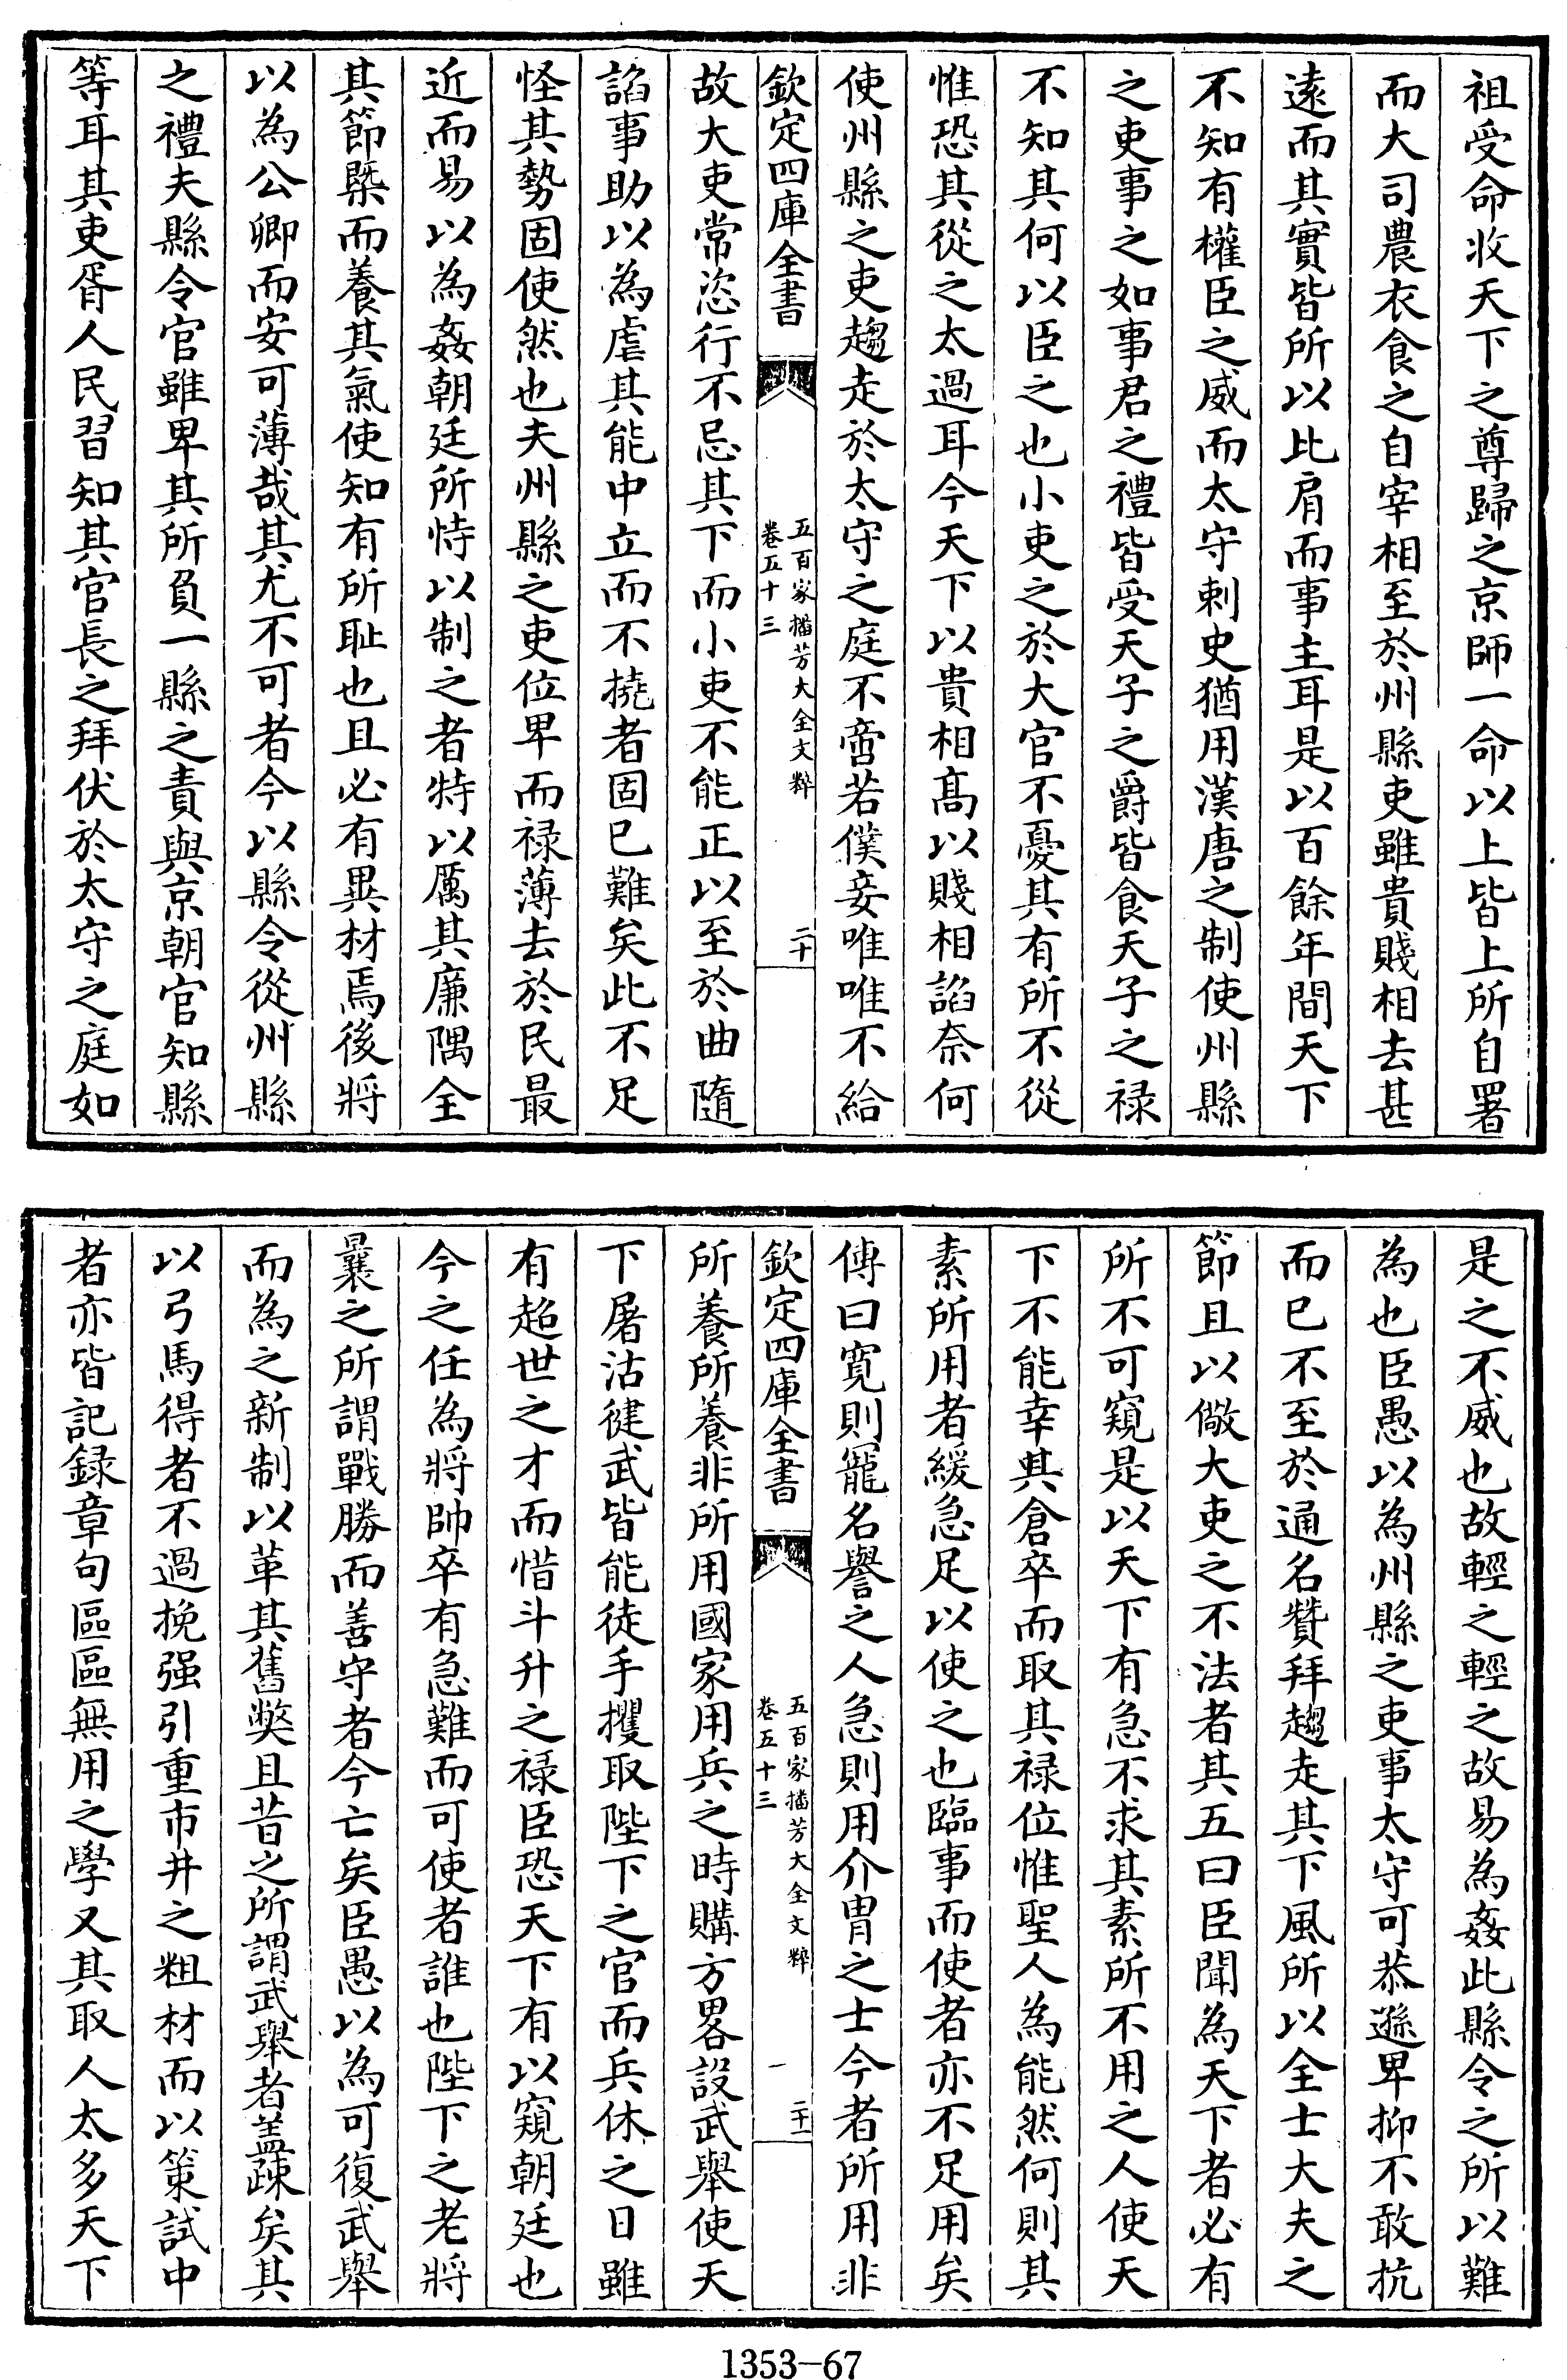 祖受命收天下之尊歸之京師一命以上皆上所自署
而大司農衣食之自宰相至於州縣吏雖貴賤相去甚
遠而其實皆所以比肩而事主耳是以百餘年間天下
不知有權臣之威而太守刺史猶用漢唐之制使州縣
之吏事之如事君之禮皆受天子之爵皆食天子之禄
不知其何以臣之也小吏之於大官不憂其有所不從
惟恐其從之太過耳今天下以貴相髙以賤相諂奈何
使州縣之吏趨走於太守之庭不啻若僕妾唯唯不給
欽定四庫全書
五百家播芳大全文粹
卷五十三
二十
故大吏常恣行不忌其下而小吏不能正以至於曲隨
諂事助以為虐其能中立而不撓者固已難矣此不足
怪其勢固使然也夫州縣之吏位卑而禄薄去於民最
近而易以為姦朝廷所恃以制之者特以厲其廉隅全
其節槩而養其氣使知有所耻也且必有異材焉後將
以為公卿而安可薄哉其尤不可者今以縣令從州縣
之禮夫縣令官雖卑其所負一縣之責與京朝官知縣
等耳其吏胥人民習知其官長之拜伏於太守之庭如
是之不威也故輕之輕之故易為姦此縣令之所以難
為也臣愚以為州縣之吏事太守可恭遜卑抑不敢抗
而已不至於通名贊拜趨走其下風所以全士大夫之
節且以儆大吏之不法者其五曰臣聞為天下者必有
所不可窺是以天下有急不求其素所不用之人使天
下不能幸其倉卒而取其禄位惟聖人為能然何則其
素所用者緩急足以使之也臨事而使者亦不足用矣
傳曰寛則寵名譽之人急則用介胄之士今者所用非
欽定四庫全書
五百家播芳大全文粹
卷五十三
二十一
所養所養非所用國家用兵之時購方畧設武舉使天
下屠沽徤武皆能徒手攫取陛下之官而兵休之日雖
有超世之才而惜斗升之禄臣恐天下有以窺朝廷也
今之任為將帥卒有急難而可使者誰也陛下之老將
曩之所謂戰勝而善守者今亡矣臣愚以為可復武舉
而為之新制以革其舊弊且昔之所謂武舉者蓋疎矣其
以弓馬得者不過挽强引重市井之粗材而以策試中
者亦皆記録章句區區無用之學又其取人太多天下
1353-67